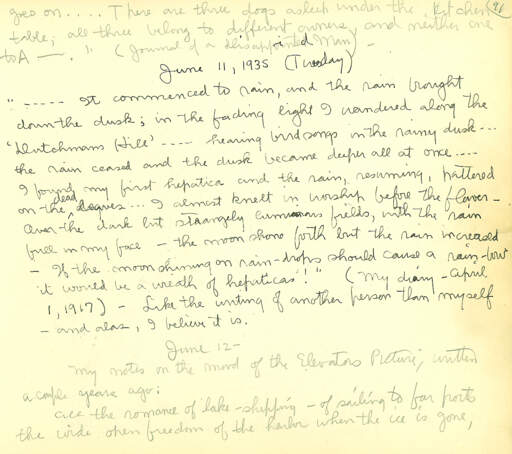 goes on .... There are three dogs asleep under the kitchen
table; all three belong to different owners, and neither one
to A—." (Journal of a disappointed Man) -
June 11, 1935 (Tuesday)
"----- It commenced to rain, and the rain brought
down the dusk; in the fading light I wandered along the
'Dutchmans Hill' ---- hearing bird songs in the rainy dusk ---
the rain ceased and the dusk became deeper all at once ----
I found my first hepatica and the rain, resuming, pattered
on the dead leaves --- I almost knelt in worship before the flower -
Over the dark but strangely luminous fields, with the rain
full in my face — the moon shone forth but the rain increased
- If the moon shining on rain-drops should cause a rain-bow
it would be a wreath of hepaticas!" (My diary - April
1, 1917) - Like the writing of another person than myself
- and alas, I believe it is.
June 12 -
My notes on the mood of the Elevators Picture, written
a couple years ago:
all the romance of lake-shipping - of sailing to far ports
the wide open freedom of the harbor when the ice is gone,